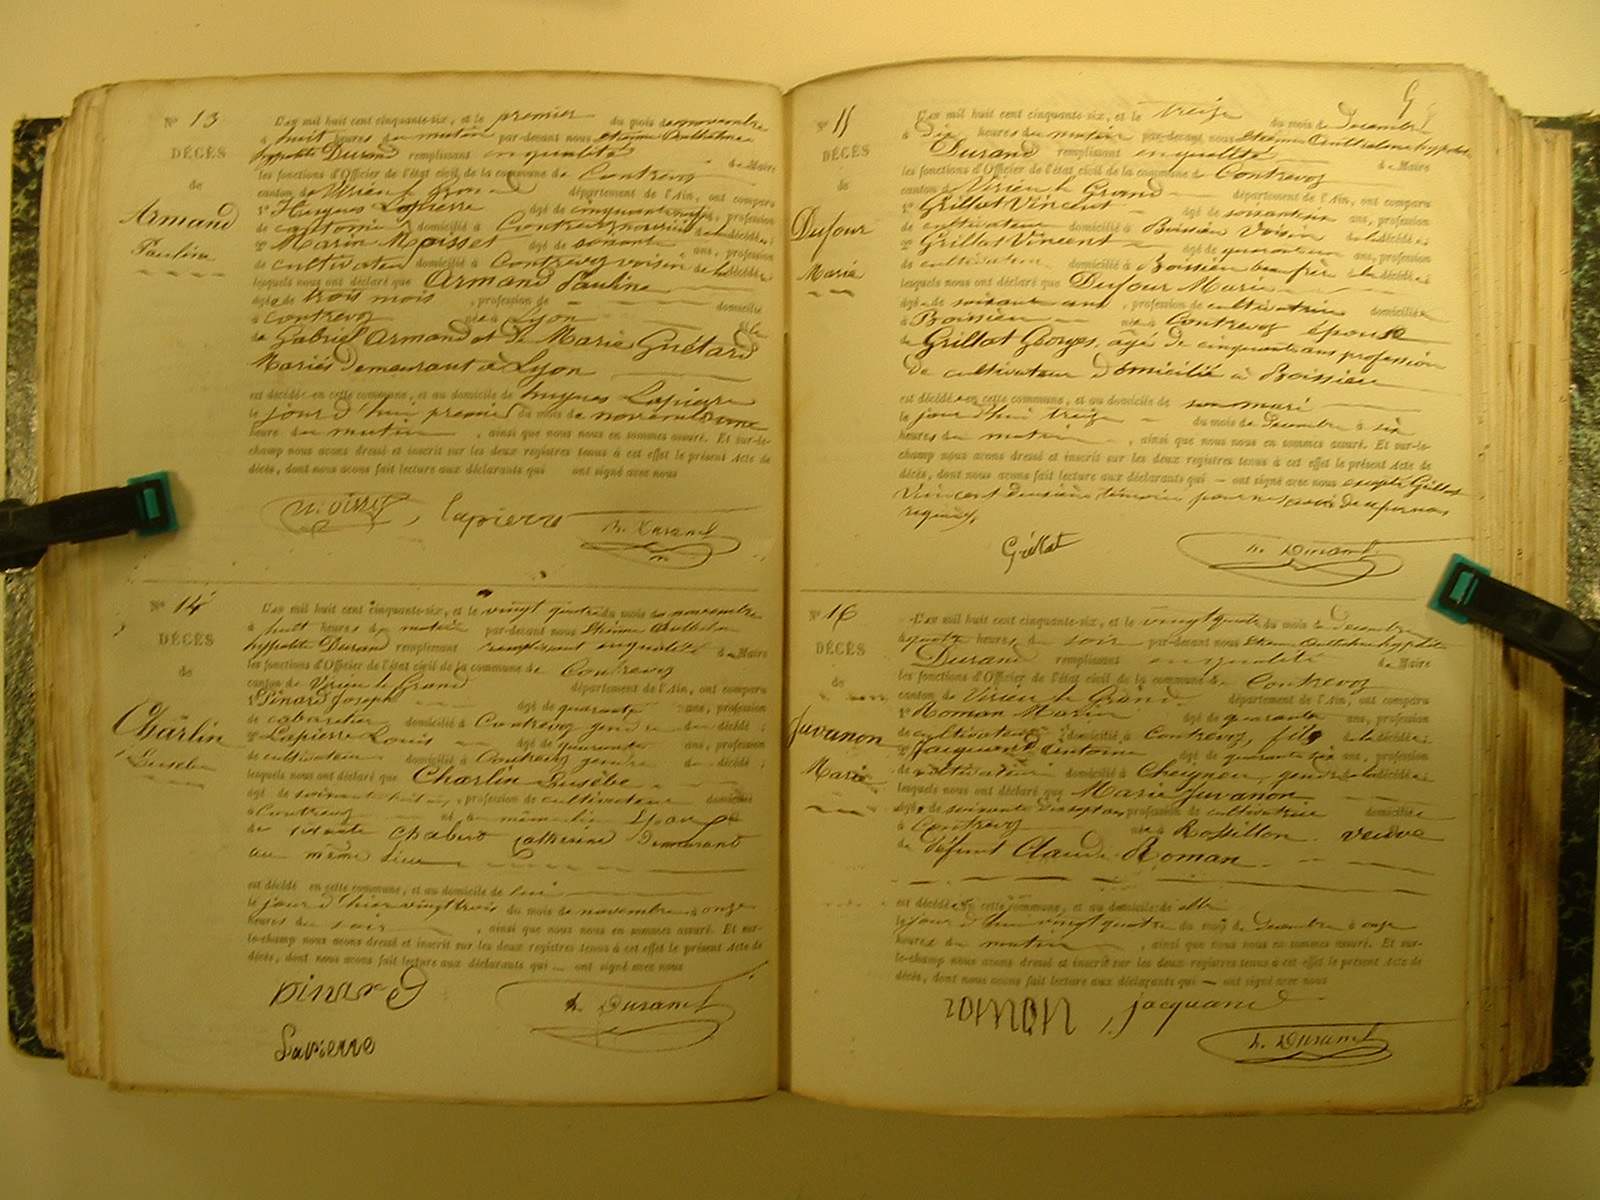 N° 13
DÉCÈS
de
Armand
Pauline
L'an mil huit cent cinquante-six, et le premier du mois de novembre
à huit heures du matin par-devant nous Etienne Anthelme
hyppolite Durand remplissant en qualité de Maire
les fonctions d'Officier de l'état civil de la commune de Contrevoz
canton de Virieu le Grand département de l'Ain, ont comparu
1° Hugues Lapierre âgé de cinquante ans, profession
de domicilié à Contrevoz décédée;
2° Marin Moisset âgé de soixante ans, profession
de cultivateur domicilié à Contrevoz voisin de la décédée;
lesquels nous ont déclaré que Armand Pauline
âgée de trois mois, profession de domiciliée
à Contrevoz née à Lyon fille
de Gabriel Armand et de Marie Guétard
Mariés demeurant à Lyon
est décédée en cette commune, et au domicile de hugues Lapierre
le jour d'hui premier du mois de novembre à une
heure du matin, ainsi que nous nous en sommes assuré. Et sur-le-
champ nous avons dressé et inscrit sur les deux registres tenus à cet effet le présent Acte de
décès, dont nous avons fait lecture aux déclarants qui ont signé avec nous
lapierre h. Durand
N° 14
DÉCÈS
de
Charlin
Eusèbe
L'an mil huit cent cinquante-six, et le vingt quatre du mois de novembre
à huit heures du matin par-devant nous Etienne Anthelme
hyppolite Durand remplissant remplissant en qualité de Maire
les fonctions d'Officier de l'état civil de la commune de Contrevoz
canton de Virieu le Grand département de l'Ain, ont comparu
1° Pinard Joseph âgé de quarante ans, profession
de cabaretier domicilié à Contrevoz gendre du décédé;
2° Lapierre Louis âgé de quarante ans, profession
de cultivateur domicilié à Contrevoz gendre du décédé;
lesquels nous ont déclaré que Charlin Eusèbe
âgé de soixante huit ans, profession de cultivateur domicilié
à Contrevoz né au même lieu Epoux
de vivante Chabert Catherine Demeurant
au même lieu
est décédé en cette commune, et au domicile de lui
le jour d'hier vingt trois du mois de novembre à onze
heures du soir, ainsi que nous nous en sommes assuré. Et sur-
le-champ nous avons dressé et inscrit sur les deux registres tenus à cet effet le présent Acte de
décès, dont nous avons fait lecture aux déclarants qui ont signé avec nous
Pinard h. Durand
Lapierre
N° 15
DÉCÈS
de
Dufour
Marie
L'an mil huit cent cinquante-six, et le treize du mois de Decembre
à dix heures du matin par-devant nous Etienne Anthelme hyppolite
Durand remplissant en qualité de Maire
les fonctions d'Officier de l'état civil de la commune de Contrevoz
canton de Virieu le Grand département de l'Ain, ont comparu
1° Grillat Vincent âgé de ans, profession
de cultivateur domicilié à Boissieu Voisin de la décédée;
2° Grillat Vincent âgé de ans, profession
de cultivateur domicilié à Boissieu beau frère de la décédée;
lesquels nous ont déclaré que Dufour Marie
âgée de soixante ans, profession de cultivatrice domiciliée
à Boissieu née à Contrevoz épouse
de Grillat Georges, âgé de cinquante ans profession
de cultivateur domicilié à Boissieu
est décédée en cette commune, et au domicile de son mari
le jour d'hui treize du mois de Decembre à six
heures du matin, ainsi que nous nous en sommes assuré. Et sur-le-
champ nous avons dressé et inscrit sur les deux registres tenus à cet effet le présent Acte de
décès, dont nous avons fait lecture aux déclarants qui ont signé avec nous excepté Grillat
Vincent deuxième témoin pour ne savoir de ce par nous
requis.
Grillat h. Durand
N° 16
DÉCÈS
de
Juvanon
Marie
L'an mil huit cent cinquante-six, et le vingt quatre du mois de Decembre
à quatre heures du soir par-devant nous Etienne Anthelme hyppolite
Durand remplissant en qualité de Maire
les fonctions d'Officier de l'état civil de la commune de Contrevoz
canton de Virieu le Grand département de l'Ain, ont comparu
1° Roman Marin âgé de quarante ans, profession
de cultivateur domicilié à Contrevoz, fils de la décédée;
2° Jacquand Antoine âgé de quarante six ans, profession
de cultivateur domicilié à Cheignieu, gendre de la décédée;
lesquels nous ont déclaré que Marie Juvanon
âgée de soixante dix sept ans profession de cultivatrice domiciliée
à Contrevoz née à Rossillon veuve
de défunt Claude Roman
est décédée en cette commune, et au domicile de elle
le jour d'hui vingt quatre du mois de Decembre à onze
heures du matin, ainsi que nous nous en sommes assuré. Et sur-
le-champ nous avons dressé et inscrit sur les deux registres tenus à cet effet le présent Acte de
décès, dont nous avons fait lecture aux déclarants qui ont signé avec nous
roman jacquand
h. Durand